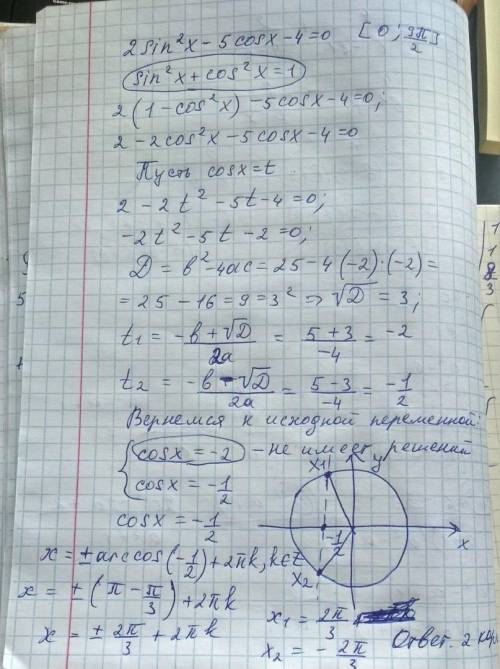 2sin²x - 5cosx - 4 = 0   [0; 9π/2]
sin²x + cos²x = 1
2(1 - cos²x) - 5cosx - 4 = 0;
2 - 2cos²x - 5cosx - 4 = 0
Пусть cosx = t
2 - 2t² - 5t - 4 = 0;
-2t² - 5t - 2 = 0;
D = b² - 4ac = 25 - 4(-2)·(-2) =
= 25 - 16 = 9 = 3² => √D = 3;
t₁ = (-b + √D)/2a = (5 + 3)/-4 = -2
t₂ = (-b - √D)/2a = (5 - 3)/-4 = -1/2
Вернемся к исходной переменной:
{ cosx = -2 - не имеет решений
cosx = -1/2
cosx = -1/2
x₁
y
-1/2
x
x₂
x = ± arccos(-1/2) + 2πk, k∈Z
x = ± (π - π/3) + 2πk
x = ± 2π/3 + 2πk
x₁ = 2π/3
x₂ = - 2π/3
Ответ. 2